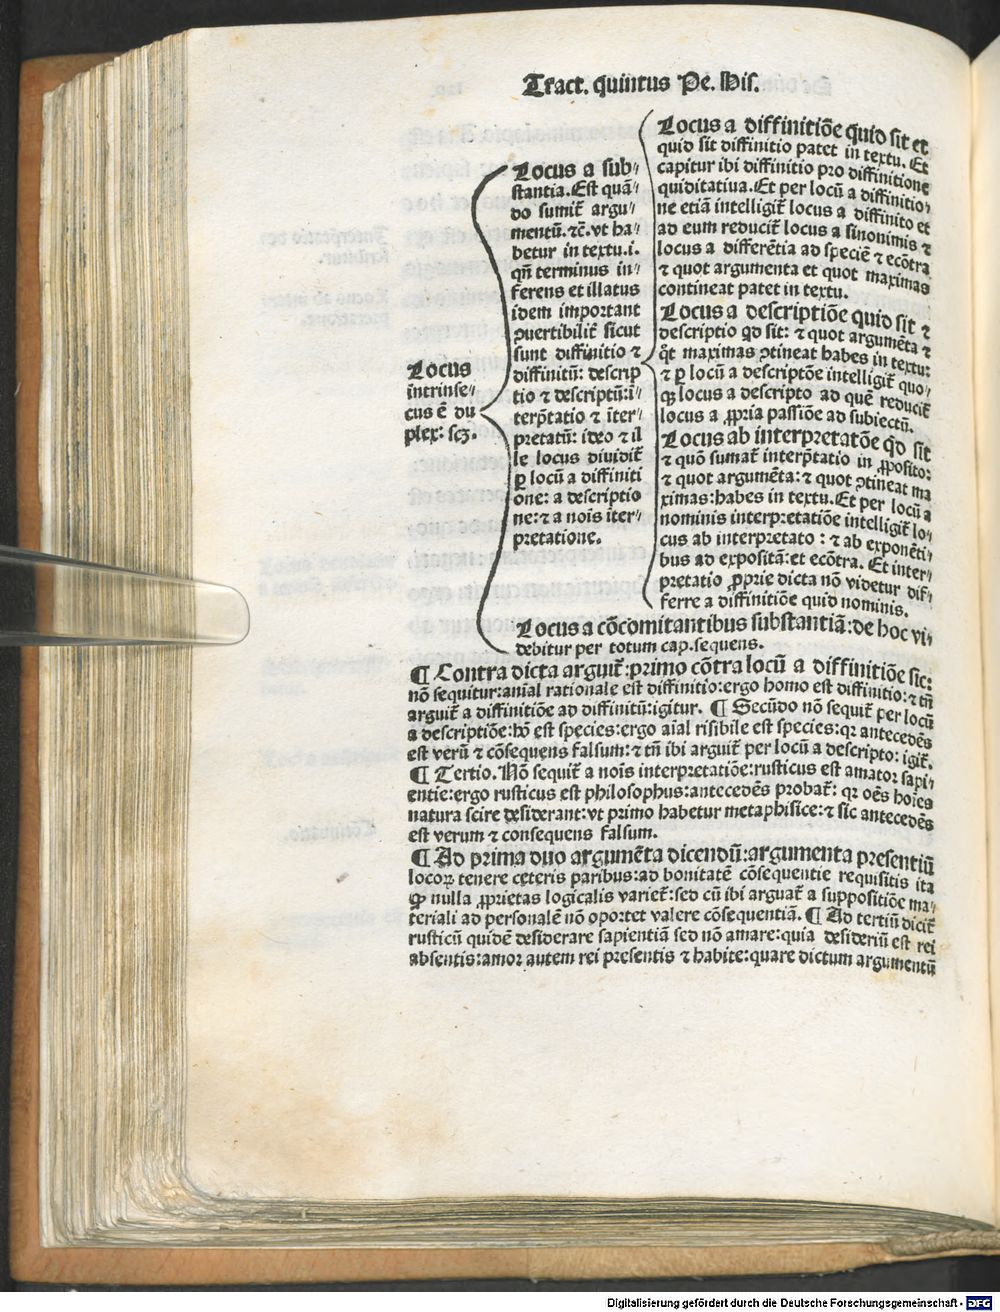 Tract. quintus Pe. His.
Locus
intrinse⸗
cus ē du
plex: scꝫ.
Locus a sub⸗
stantia. Est quā⸗
do sumit̄ argu⸗
mentū. ⁊c̄. vt ha⸗
betur in textu. i.
qn̄ terminus in⸗
ferens et illatus
idem important
ↄuertibilit̄ sicut
sunt diffinitio ⁊
diffinitū: descrip
tio ⁊ descriptū: ī⸗
terp̄tatio ⁊ īter⸗
pretatū: ideo ⁊ il
le locus diuidit̄
ꝑ locū a diffiniti
one: a descriptio
ne: ⁊ a nois̄ īter⸗
pretatione.
Locus a diffinitiōe quid sit et
quid sit diffinitio patet in textu. Et
capitur ibi diffinitio pro diffinitione
quiditatiua. Et per locū a diffinitio⸗
ne etiā intelligit̄ locus a diffinito et
ad eum reducit̄ locus a sinonimis ⁊
locus a differētia ad speciē ⁊ ecōtra
⁊ quot argumenta et quot maximas
contineat patet in textu.
Locus a descriptiōe quid sit ⁊
descriptio qd sit: ⁊ quot argumēta ⁊
q̄t maximas ↄtineat habes in textu:
⁊ ꝑ locū a descriptōe intelligit̄ quo⸗
qꝫ locus a descripto ad quē reducit̄
locus a ꝓpria passiōe ad subiectū.
Locus ab interpretatōe qd sit
⁊ quō sumat̄ interp̄tatio in ꝓposito:
⁊ quot argumēta: ⁊ quot ↄtineat ma
ximas: habes in textu. Et per locū a
nominis interpretatiōe intelligit̄ lo⸗
cus ab interpretato: ⁊ ab exponēti⸗
bus ad expositā: et ecōtra. Et inter⸗
pretatio ꝓprie dicta nō videtur dif⸗
ferre a diffinitiōe quid nominis.
Locus a cōcomitantibus substantiā: de hoc vi⸗
debitur per totum cap. sequens.
¶ Contra dicta arguit̄: primo cōtra locū a diffinitiōe sic:
nō sequitur: animal rationale est diffinitio: ergo homo est diffinitio: ⁊ tn̄
arguit̄ a diffinitiōe ad diffinitū: igitur. ¶ Secūdo nō sequit̄ per locū
a descriptiōe: hō est species: ergo aīal risibile est species: qꝛ antecedēs
est verū ⁊ cōsequens falsum: ⁊ tn̄ ibi arguit̄ per locū a descripto: igit̄.
¶ Tertio. Nō sequit̄ a nois̄ interpretatiōe: rusticus est amator sapi⸗
entie: ergo rusticus est philosophus: antecedēs probat̄: qꝛ oēs hoīes
natura scire desiderant: vt primo habetur metaphisice: ⁊ sic antecedēs
est verum ⁊ consequens falsum.
¶ Ad prima duo argumēta dicendū: argumenta presentiū
locoꝝ tenere ceteris paribus: ad bonitatē cōsequentie requisitis ita
ꝙ nulla ꝓprietas logicalis variet̄: sed cū ibi arguat̄ a suppositiōe ma⸗
teriali ad personalē nō oportet valere cōsequentiā. ¶ Ad tertiū dicit̄
rusticū quidē desiderare sapientiā sed nō amare: quia desideriū est rei
absentis: amor autem rei presentis ⁊ habite: quare dictum argumentū
Digitalisierung gefördert durch die Deutsche Forschungsgemeinschaft - DFG